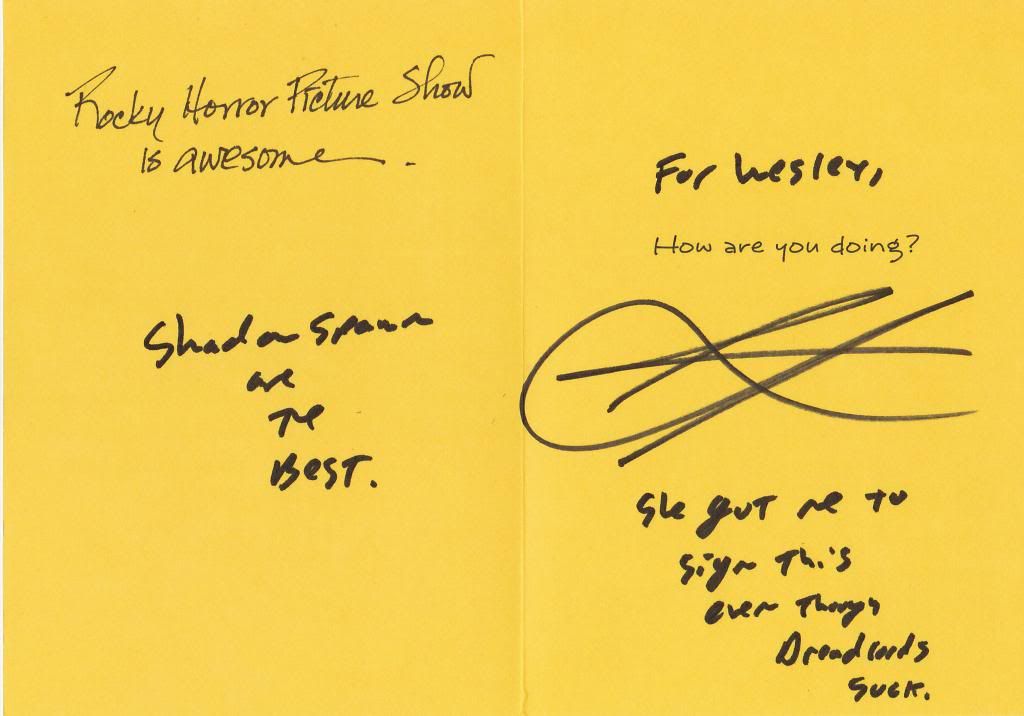 Rocky Horror Picture Show
is awesome.
Shadow Spawn
are
THE
BEST.
For Wesley,
How are you doing?
She gut me to
sign This
even Though
Dreadlords
suck.